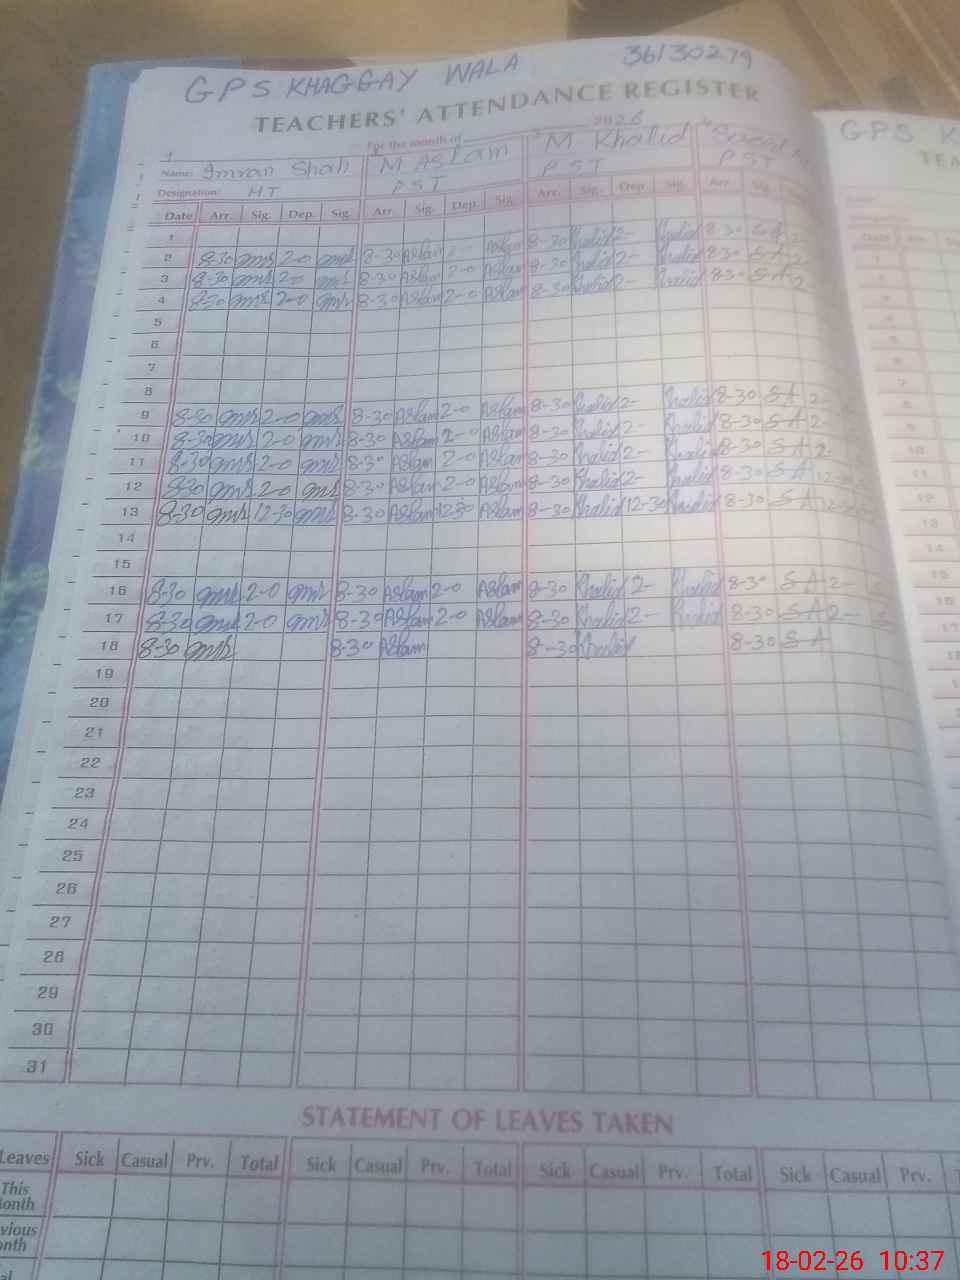 GPS KHAGGAY WALA 36130279
TEACHERS' ATTENDANCE REGISTER
For the month of 2026
Name: Imran Shah M Aslam M Khalid
Designation: HT PST PST PST
Date Arr. Sig. Dep. Sig. Arr. Sig. Dep. Sig. Arr. Sig. Dep. Sig. Arr. Sig.
1
2 8-30 2-0 8-30 Aslam Aslam 8-30 Khalid 2- Khalid 8-30 S-A 2
3 8-30 2-0 8-30 Aslam 2-0 Aslam 8-30 Khalid 2- Khalid 8-30 S-A 2
4 8-30 2-0 8-30 Aslam 2-0 Aslam 8-30 Khalid 2- Khalid 8-30 S-A 2
5
6
7
8
9 8-30 2-0 8-30 Aslam 2-0 Aslam 8-30 Khalid 2- Khalid 8-30 S-A 2
10 8-30 2-0 8-30 Aslam 2-0 Aslam 8-30 Khalid 2- Khalid 8-30 S-A 2-
11 8-30 2-0 8-30 Aslam 2-0 Aslam 8-30 Khalid 2- Khalid 8-30 S-A 2-
12 8-30 2-0 8-30 Aslam 2-0 Aslam 8-30 Khalid 2- Khalid 8-30 S-A
13 8-30 12-30 8-30 Aslam 12-30 Aslam 8-30 Khalid 12-30 Khalid 8-30 S-A 12-30
14
15
16 8-30 2-0 8-30 Aslam 2-0 Aslam 8-30 Khalid 2- Khalid 8-30 S-A 2-
17 8-30 2-0 8-30 Aslam 2-0 Aslam 8-30 Khalid 2- Khalid 8-30 S-A 2- S
18 8-30 8-30 Aslam 8-30 Khalid 8-30 S-A
19
20
21
22
23
24
25
26
27
28
29
30
31
STATEMENT OF LEAVES TAKEN
Leaves Sick Casual Prv. Total Sick Casual Prv. Total Sick Casual Prv. Total Sick Casual Prv.
This
onth
vious
onth
al
GPS K
TEA
18-02-26 10:37